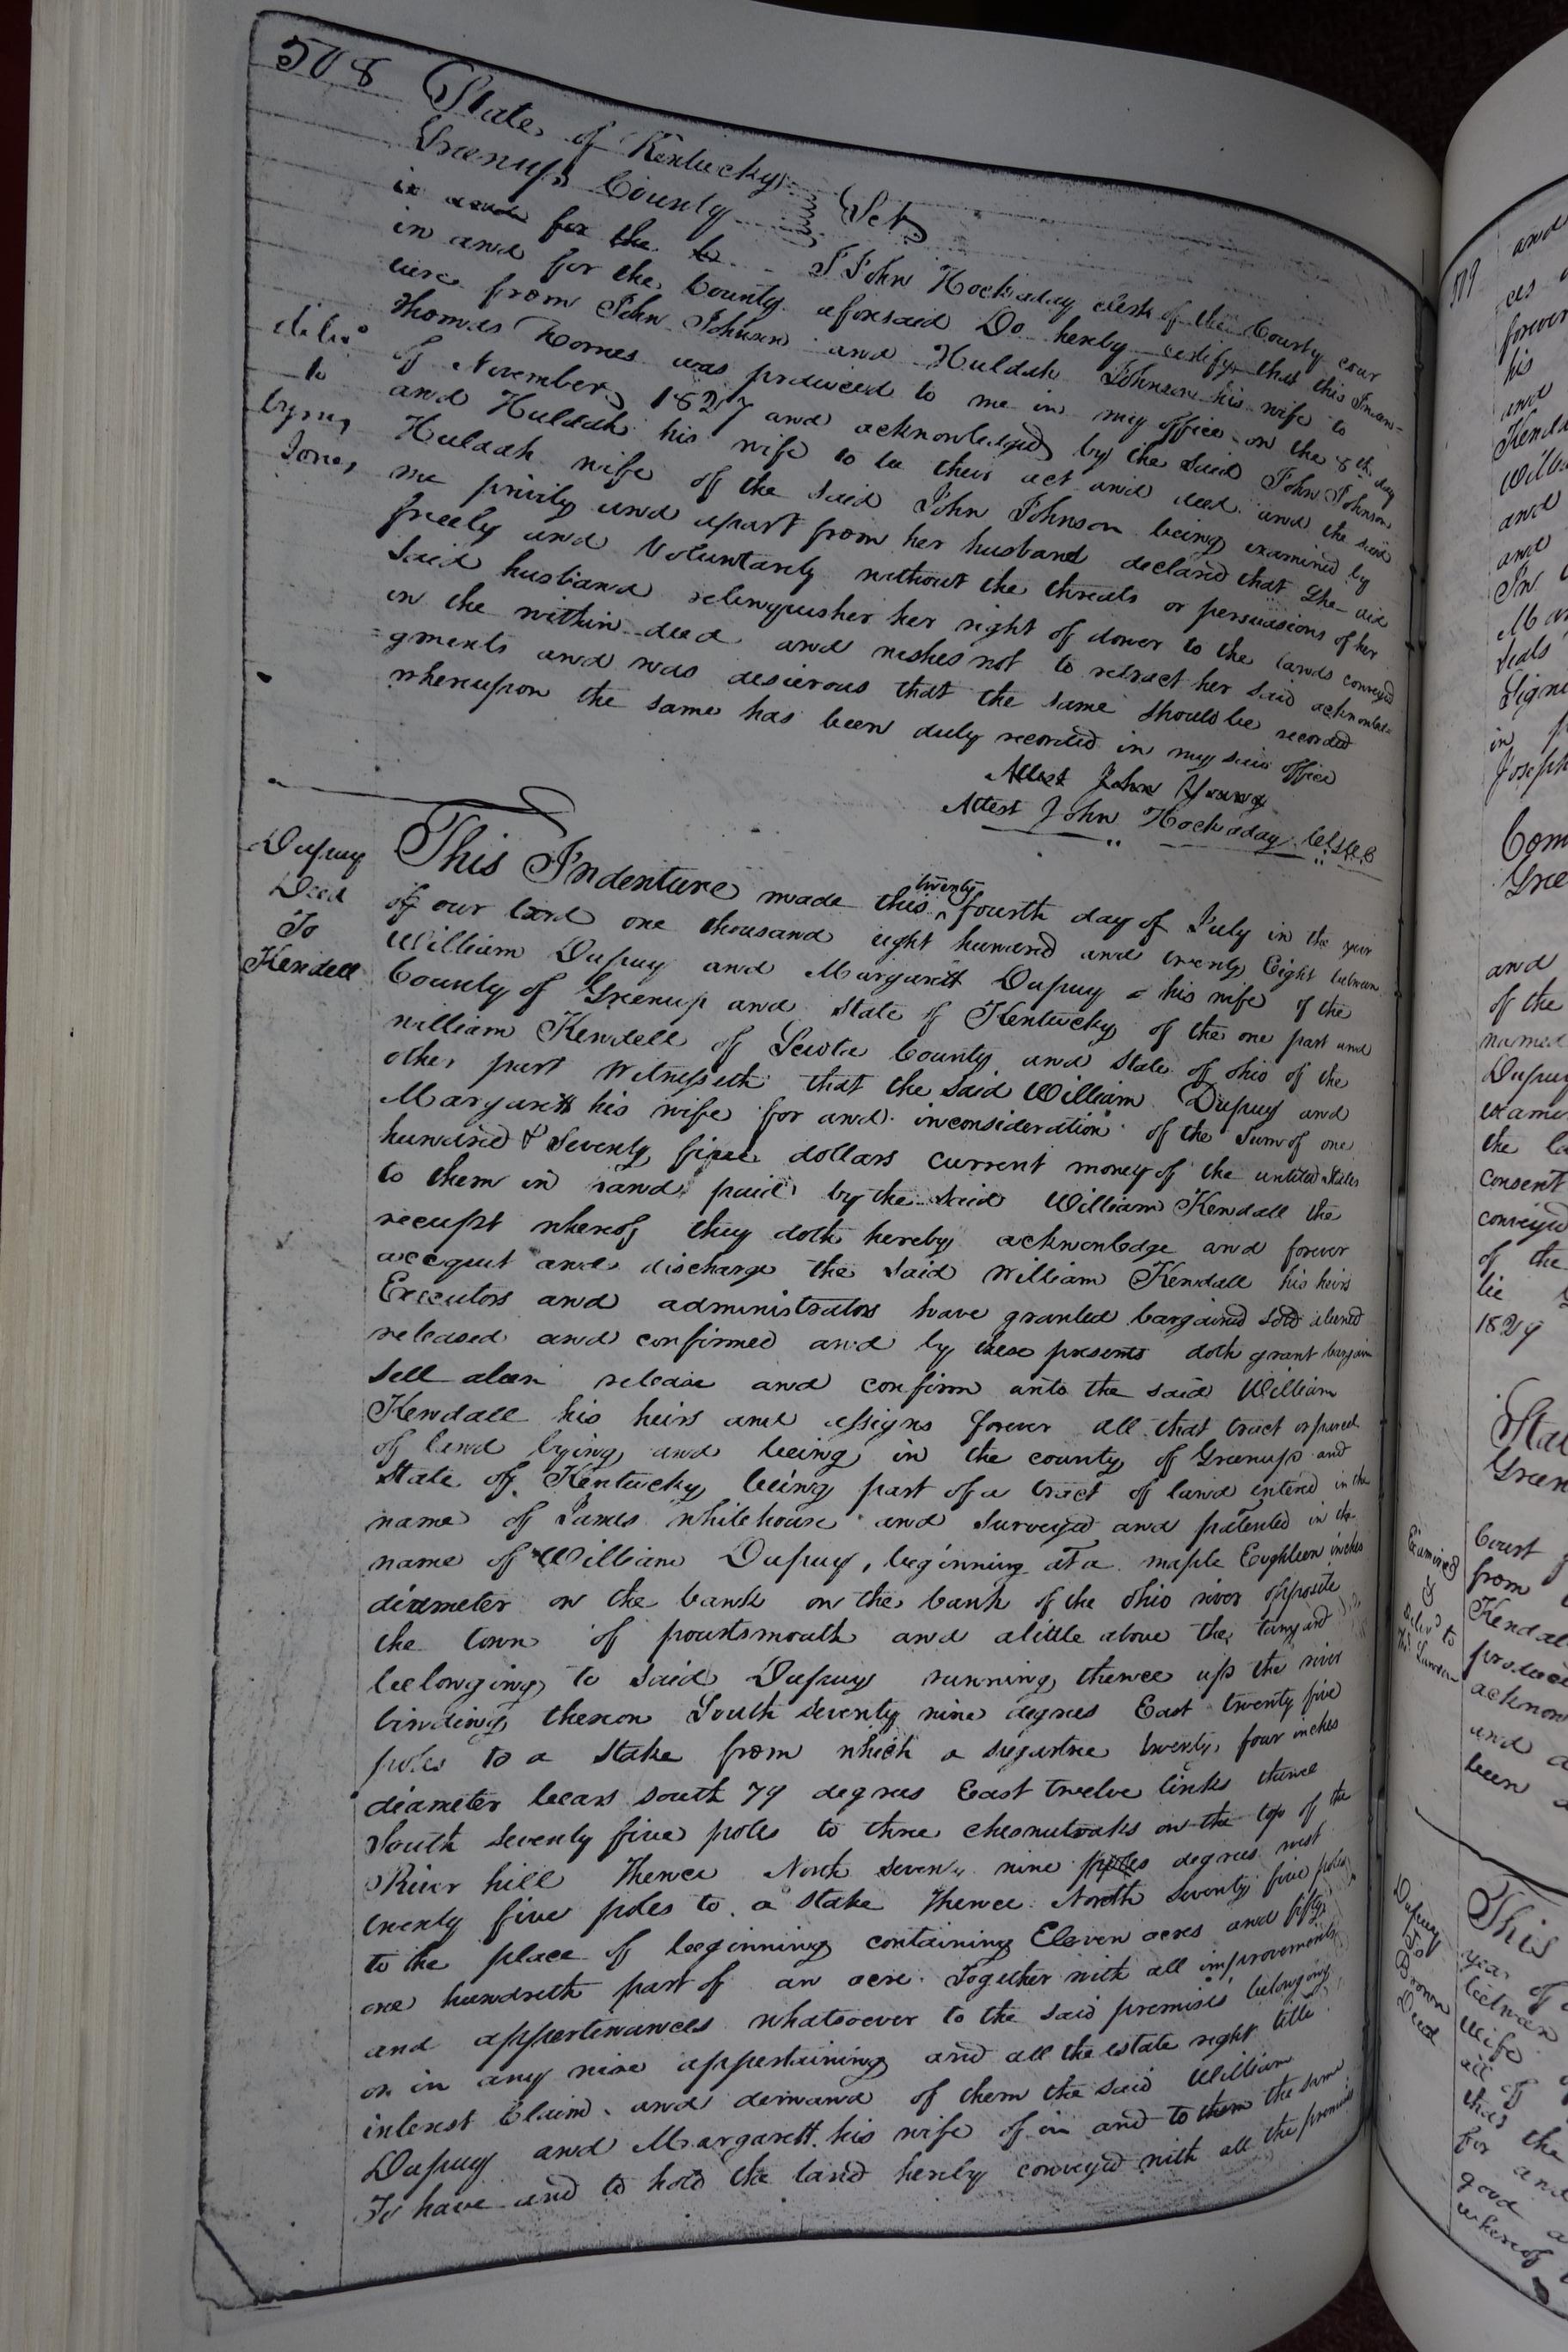 508
State of Kentucky
Greenup County Sct
in and for the
I John Hockaday clerk of the County cour
in and for the County aforesaid Do hereby certify that this Inden=
ture from John Johnson and Huldah Johnson his wife to
Thomas Hornes was produced to me in my office on the 8th day
of November 1827 and acknowledged by the said John Johnson
and Huldah his wife to be their act and deed and the said
Huldah wife of the said John Johnson being examined by
me privily and apart from her husband declared that She did
freely and Voluntarily without the threats or persuasions of her
Said husband relinquisher her right of dower to the lands conveyed
in the within deed and wishes not to retract her said acknowled=
gments and was desierous that the same should be recorded
whereupon the same has been duly recorded in my said office
Attest John Young
Attest John Hockaday
to
Jones
Dupuy
Deed
To
Kendell
This Indenture made this twenty fourth day of July in the year
of our Lord one thousand eight hundred and twenty Eight between
William Dupuy and Margarett Dupuy his wife of the
County of Greenup and State of Kentucky of the one part and
william Kendell of Sciota County and State of Ohio of the
other part Witnesseth that the said William Dupuy and
Margarett his wife for and inconsideration of the Sum of one
hundred & Seventy five dollars current money of the united States
to them in hand paid by the said William Kendall the
receipt whereof they doth hereby acknowledge and forever
accquit and discharge the said William Kendall his heirs
Executors and administrators have granted bargained sold aliened
released and confirmed and by these presents doth grant bargain
Sell alien release and confirm unto the said William
Kendall his heirs and assigns forever all that tract or parcel
of land lying and beeing in the county of Greenup and
State of Kentucky being part of a tract of land entered in the
name of James whitehouse and Surveyed and patented in the
name of William Dupuy, beginning at a maple Eughteen inches
diameter on the bank on the bank of the Ohio river opposite
the town of pourtsmouth and alittle above the tanyard
beelonging to said Dupuy running thence up the river
binding thereon South seventy nine degrees East twenty five
poles to a Stake from which a sugartree twenty four inches
diameter bears south 79 degrees East twelve links thence
South seventy five poles to three chesnutoaks on the top of the
River hill Thence North seventy nine poles degrees west
twenty five poles to a stake Thence North seventy five poles
to the place of beeginning containing Eleven acres and fifty
one hundreth part of an acre. Together with all improvements
and appertenances whatsoever to the said premises belonging
or in any wise appertaining and all the estate right title
interest Claim and demand of them the said William
Dupuy and Margarett his wife of in and to them the same
To have and to hold the land hereby conveyed with all the premises
509
and
ces
forever
his
and
Kenda
Willia
and
and
In
Mar
Seals
Signe
in
Joseph
Com
Gree
and
of the
named
Dupuy
exami
the la
consent
conveyed
of the
be
1829
Stat
Green
Examined
&
Court
from
Kendal
produced
acknow
and a
been
Dupuy
To
Brown
Deed
This
year of
between
Wife
all of
that the
for and
good
whereof